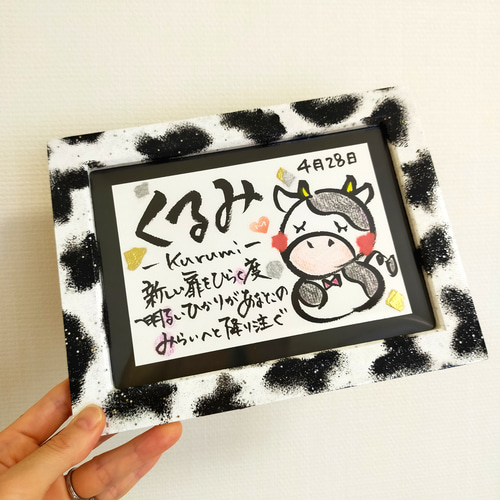 4月28日
くるみ
ーKurumiー
新しい扉をひらく度
明るいひかりがあなたの
みらいへと降り注ぐ